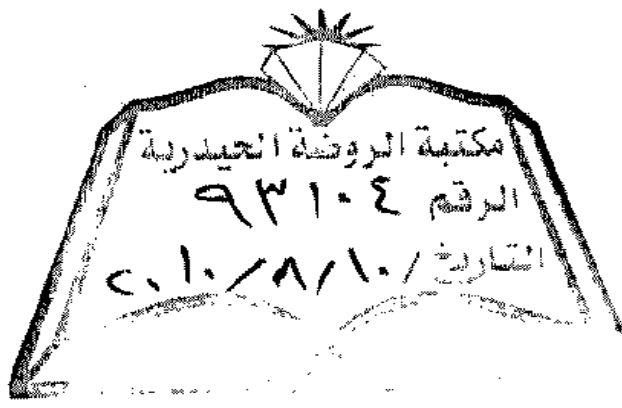 مكتبة الروضة الحيدرية
الرقم ٩٣١٠٤
التاريخ ٢٠١٠/٨/١٠/